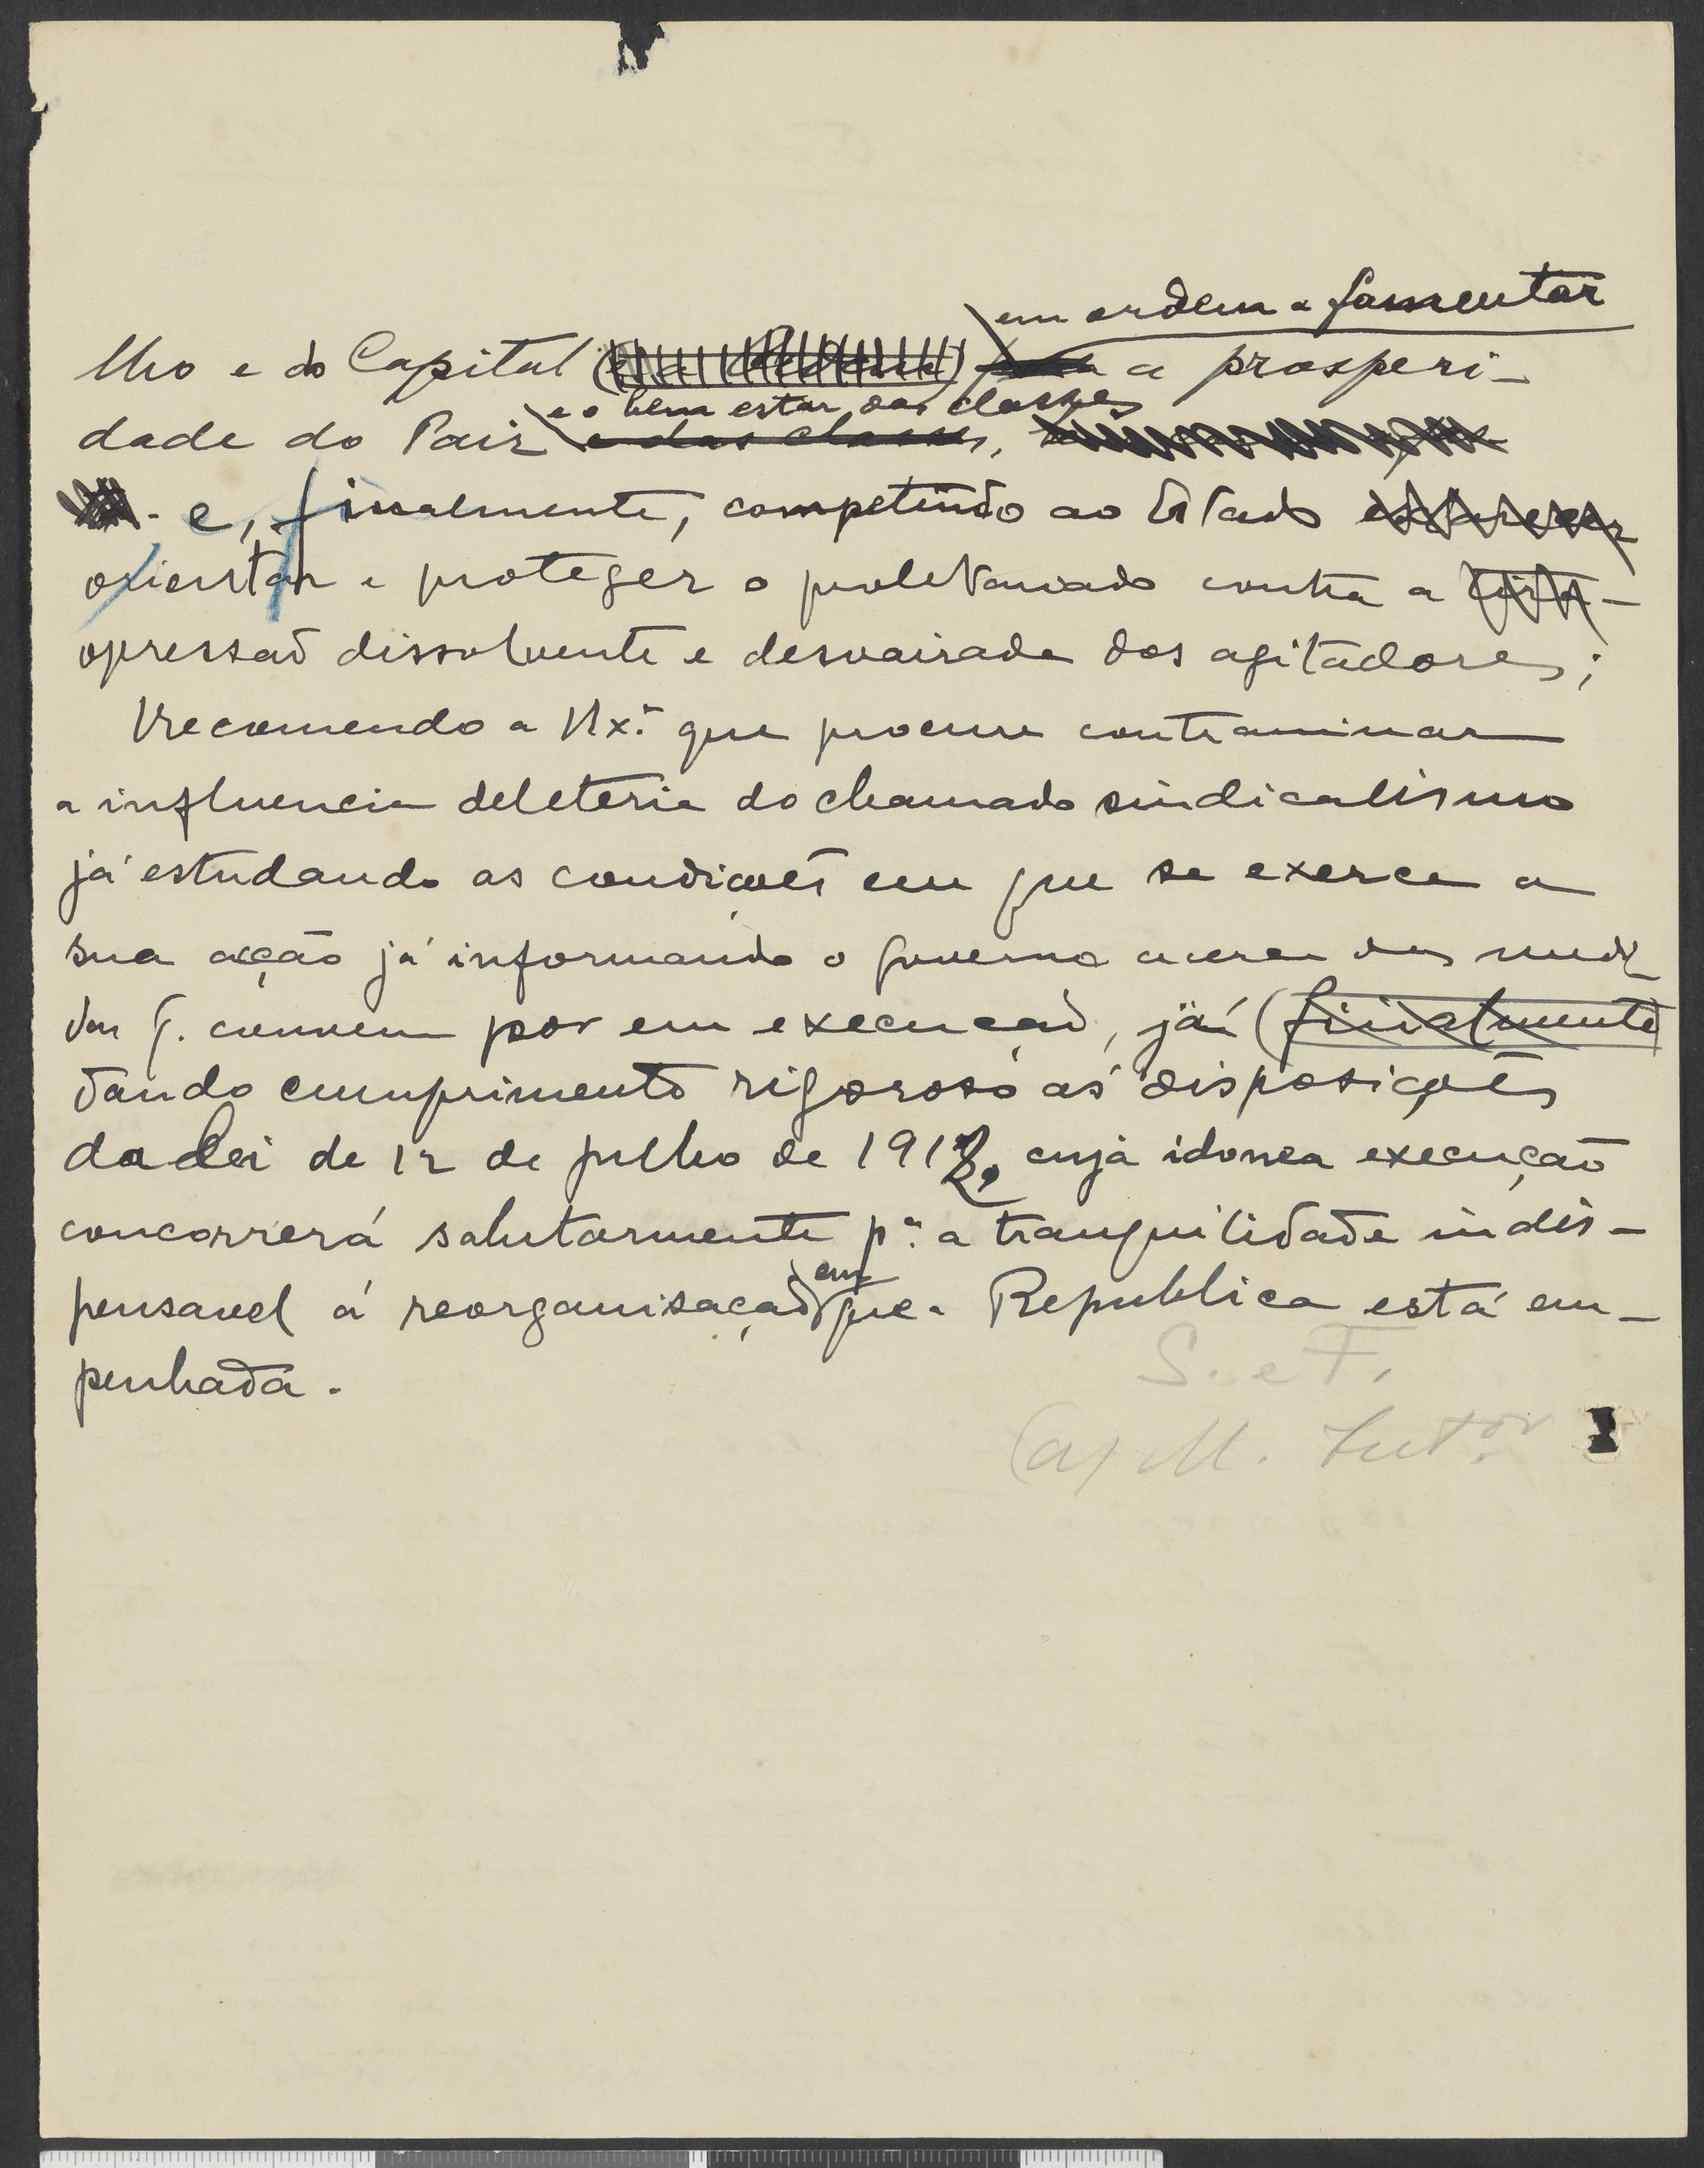 em ordem a fomentar
lho e do Capital para a prosperi-
e o bem estar das classes
dade do Paiz e das classes,
e, finalmente, competindo ao Estado esclarecer
orientar e proteger o proletariado contra a
opressaõ dissolvente e desvairada dos agitadores;
Recomendo a V. Ex.ª que procure contraminar
a influencia deleteria do chamado sindicalismo
já estudando as condiçoẽs em que se exerce a
sua acção já informando o governo acerca das medi-
das q. convem por em execuçaõ, já (finalmente)
dando cumprimento rigoroso ás disposiçoẽs
da lei de 12 de julho de 1912, cuja idonea execução
concorrerá salutarmente p.ª a tranquilidade indis-
em
pensavel á reorganisaçaõ que a Republica está em-
penhada.
S. e F.
(a) M. Int.or